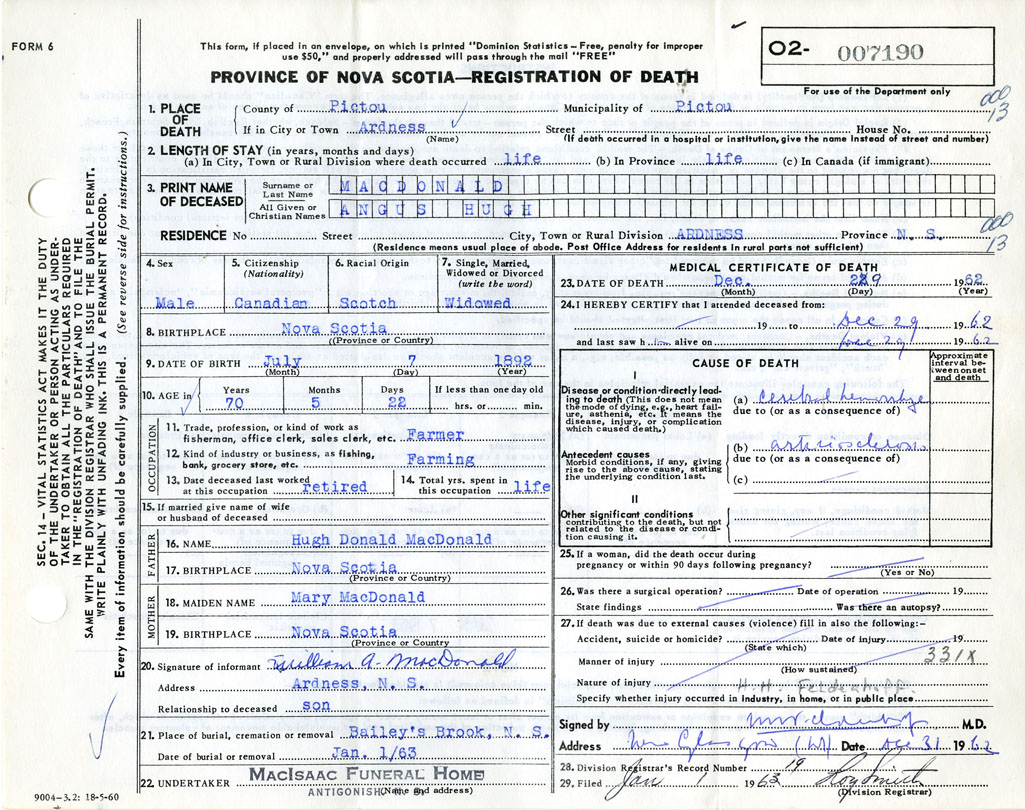 FORM 6
This form, if placed in an envelope, on which is printed "Dominion Statistics – Free, penalty for improper
use $50," and properly addressed will pass through the mail "FREE"
O2- 007190
For use of the Department only
PROVINCE OF NOVA SCOTIA—REGISTRATION OF DEATH
SEC. 14 – VITAL STATISTICS ACT MAKES IT THE DUTY
OF THE UNDERTAKER OR PERSON ACTING AS UNDER-
TAKER TO OBTAIN ALL THE PARTICULARS REQUIRED
IN THE "REGISTRATION OF DEATH" AND TO FILE THE
SAME WITH THE DIVISION REGISTRAR WHO SHALL ISSUE THE BURIAL PERMIT.
WRITE PLAINLY WITH UNFADING INK. THIS IS A PERMANENT RECORD.
Every item of information should be carefully supplied. (See reverse side for instructions.)
1. PLACE OF DEATH
County of Pictou Municipality of Pictou
000 13
If in City or Town Ardness Street House No.
(Name) (If death occurred in a hospital or institution, give the name instead of street and number)
2. LENGTH OF STAY (in years, months and days)
(a) In City, Town or Rural Division where death occurred life (b) In Province life (c) In Canada (if immigrant)
3. PRINT NAME OF DECEASED
Surname or Last Name MACDONALD
All Given or Christian Names ANGUS HUGH
RESIDENCE No Street City, Town or Rural Division ARDNESS Province N. S.
000 13
(Residence means usual place of abode. Post Office Address for residents in rural parts not sufficient)
4. Sex Male
5. Citizenship (Nationality) Canadian
6. Racial Origin Scotch
7. Single, Married, Widowed or Divorced (write the word) Widowed
8. BIRTHPLACE Nova Scotia
((Province or Country)
9. DATE OF BIRTH July 7 1892
(Month) (Day) (Year)
10. AGE in Years 70 Months 5 Days 22 If less than one day old hrs. or min.
OCCUPATION
11. Trade, profession, or kind of work as
fisherman, office clerk, sales clerk, etc. Farmer
12. Kind of industry or business, as fishing,
bank, grocery store, etc. Farming
13. Date deceased last worked
at this occupation retired
14. Total yrs. spent in
this occupation life
15. If married give name of wife
or husband of deceased
FATHER
16. NAME Hugh Donald MacDonald
17. BIRTHPLACE Nova Scotia
(Province or Country)
MOTHER
18. MAIDEN NAME Mary MacDonald
19. BIRTHPLACE Nova Scotia
(Province or Country)
20. Signature of informant William A. MacDonald
Address Ardness, N. S.
Relationship to deceased son
21. Place of burial, cremation or removal Bailey's Brook, N. S.
Date of burial or removal Jan. 1/63
22. UNDERTAKER MacIsaac Funeral Home
ANTIGONISH,
(Name and address)
9004-3.2: 18-5-60
MEDICAL CERTIFICATE OF DEATH
23. DATE OF DEATH Dec. 29 1962
(Month) (Day) (Year)
24. I HEREBY CERTIFY that I attended deceased from:
19 to Dec 29 1962
and last saw him alive on Dec 29 1962
CAUSE OF DEATH
Approximate interval be- tween onset and death
I
Disease or condition directly lead-
ing to death (This does not mean
the mode of dying, e.g., heart fail-
ure, asthenia, etc. It means the
disease, injury, or complication
which caused death.)
(a) Cerebral hemorrhage
due to (or as a consequence of)
(b) arteriosclerosis
due to (or as a consequence of)
(c)
Antecedent causes
Morbid conditions, if any, giving
rise to the above cause, stating
the underlying condition last.
II
Other significant conditions
contributing to the death, but not
related to the disease or condi-
tion causing it.
25. If a woman, did the death occur during
pregnancy or within 90 days following pregnancy?
(Yes or No)
26. Was there a surgical operation? Date of operation 19
State findings Was there an autopsy?
27. If death was due to external causes (violence) fill in also the following:–
Accident, suicide or homicide? Date of injury 19
(State which)
Manner of injury 331X
(How sustained)
Nature of injury H.H.
Specify whether injury occurred in Industry, in home, or in public place
Signed by M.D.
Address New Glasgow Date Dec 31 1962
28. Division Registrar's Record Number 19
29. Filed Jan 1 1963 Roy Smith
(Division Registrar)